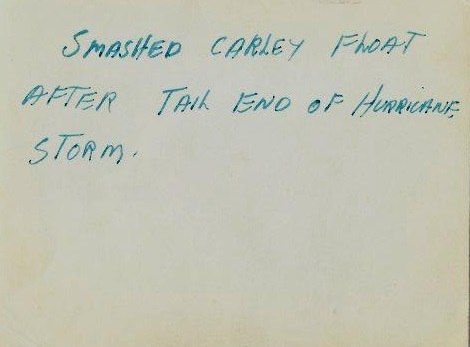 SMASHED CARLEY FLOAT
AFTER TAIL END OF HURRICANE
STORM.